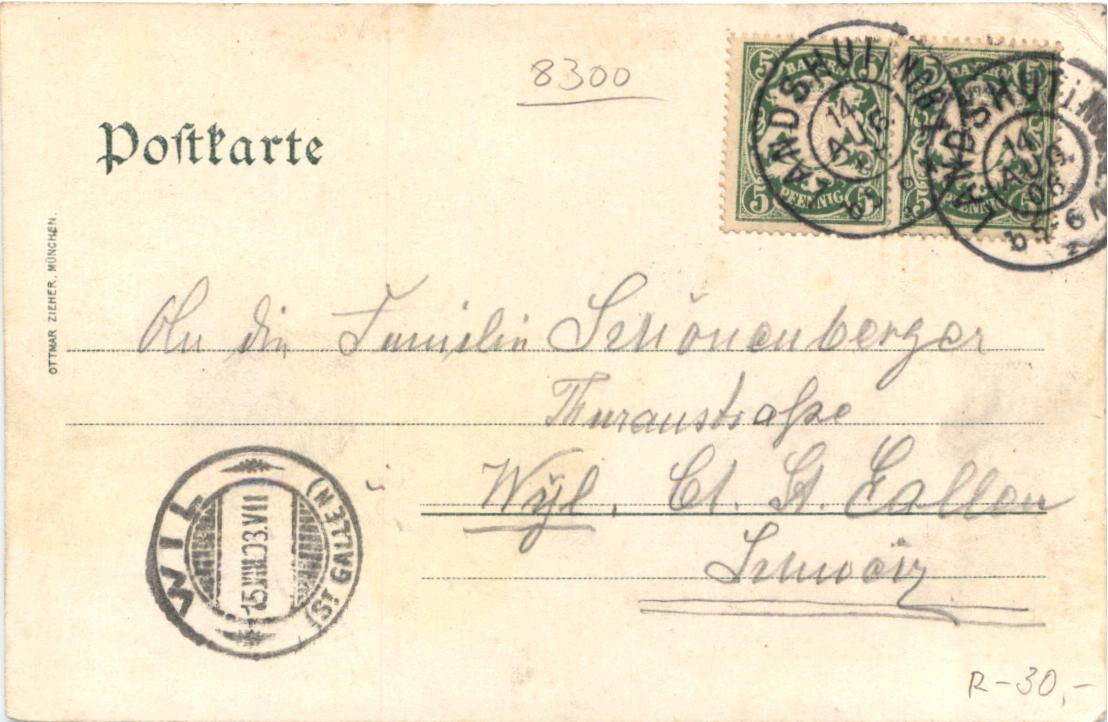 8300
Postkarte
OTTMAR ZIEHER, MÜNCHEN.
BAYERN
5 5
PFENNIG
5 5
BAYERN
PFENNIG
LANDSHUT
14
AUG
LANDSHUT
14
AUG
03
An die Familie Schönenberger
Thuraustraße
Wyl, Ct. St. Gallen
Schweiz
WIL
(ST GALLEN)
15.VIII.03.VII
R-30,-